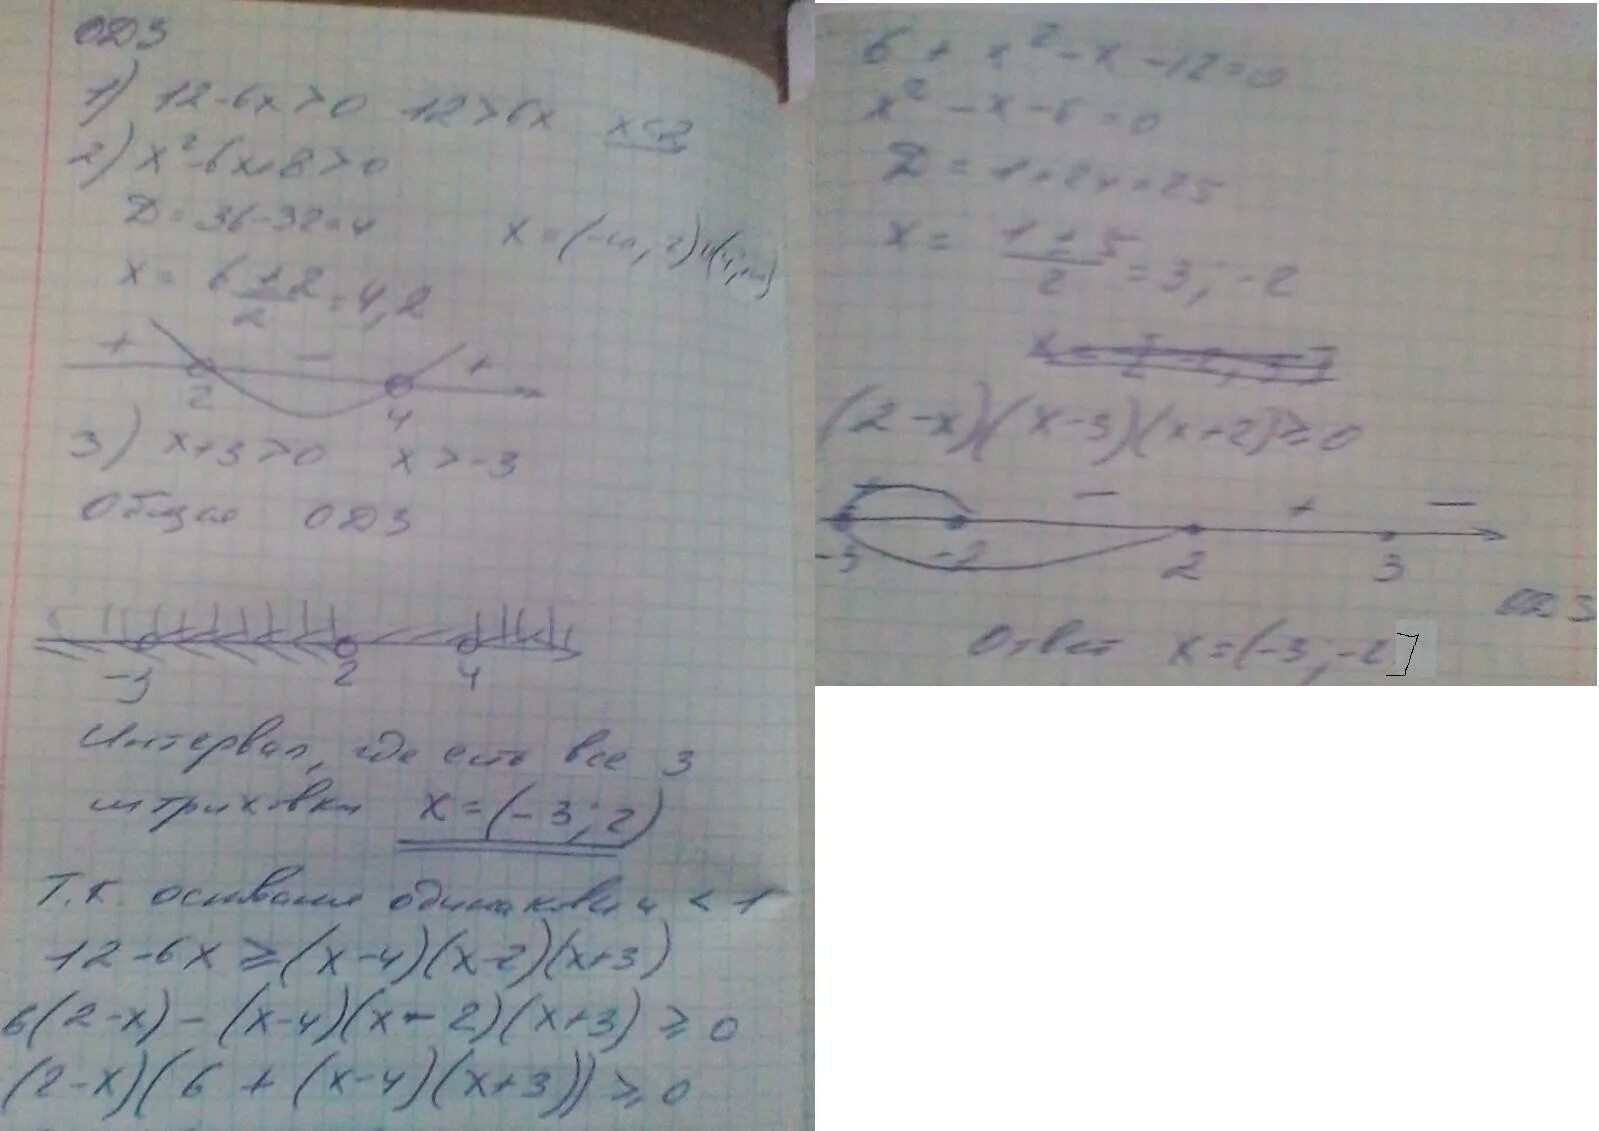 ОДЗ
1) 12-6x>0 12>6x x<2
2) x²-6x+8>0
D=36-32=4 x=(-∞, 2)∪(4;+∞)
x= (6±2)/2 =4,2
+ - +
2 4
3) x+3>0 x>-3
Общая ОДЗ
-3 2 4
Интервал, где есть все 3
штриховки x=(-3;2)
Т.к. основания одинаковы и <1
12-6x≥(x-4)(x-2)(x+3)
6(2-x)-(x-4)(x-2)(x+3)≥0
(2-x)(6+(x-4)(x+3))≥0
6+x²-x-12=0
x²-x-6=0
D=1+24=25
x= (1±5)/2 =3;-2
(2-x)(x-3)(x+2)≥0
+ - + -
-3 -2 2 3
ОДЗ
Ответ x=(-3;-2]